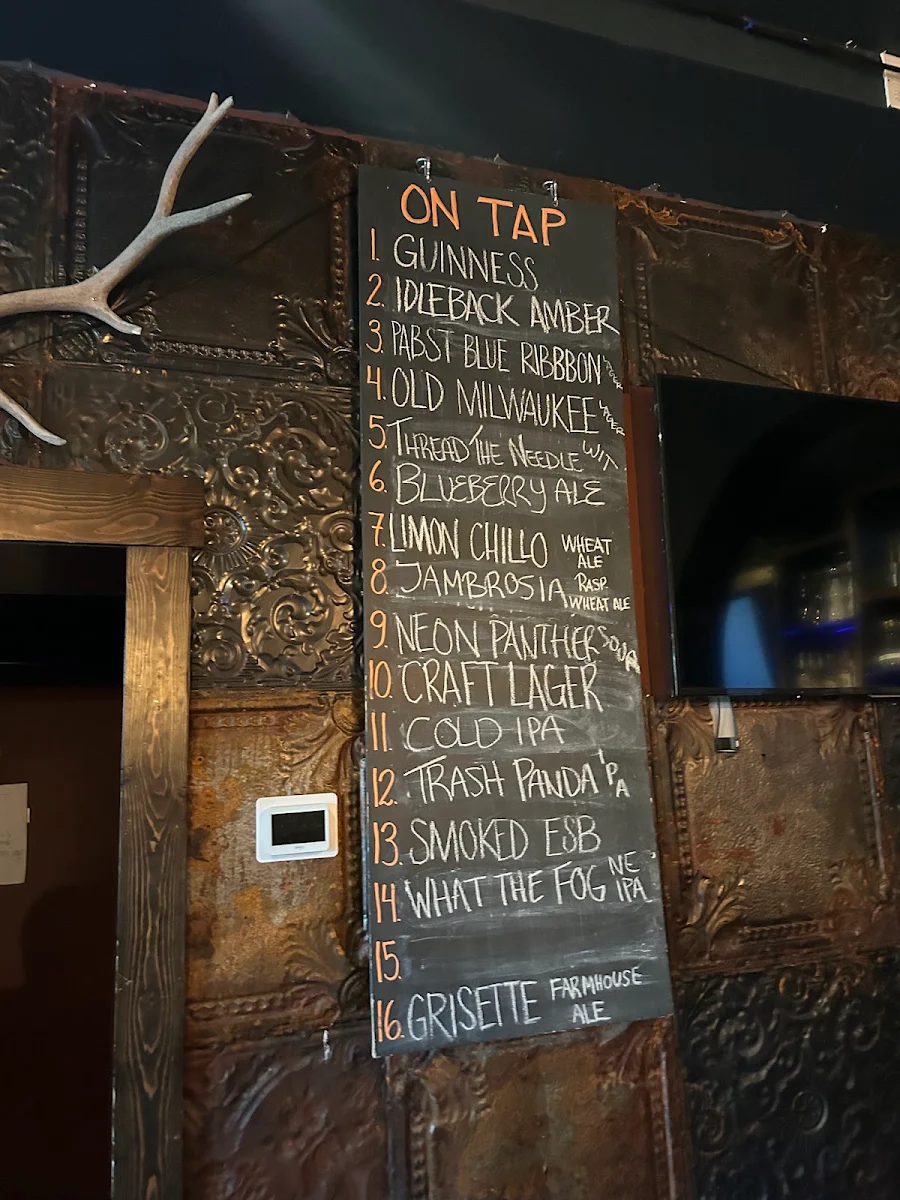 ON TAP
1. GUINNESS
2. IDLEBACK AMBER
3. PABST BLUE RIBBBON LAGER
4. OLD MILWAUKEE LAGER
5. THREAD THE NEEDLE WIT
6. BLUEBERRY ALE
7. LIMON CHILLO WHEAT
ALE
8. JAMBROSIA RASP.
WHEAT ALE
9. NEON PANTHER SOUR
10. CRAFT LAGER
11. COLD IPA
12. TRASH PANDA IPA
13. SMOKED ESB
14. WHAT THE FOG NE
IPA
15.
16. GRISETTE FARMHOUSE
ALE